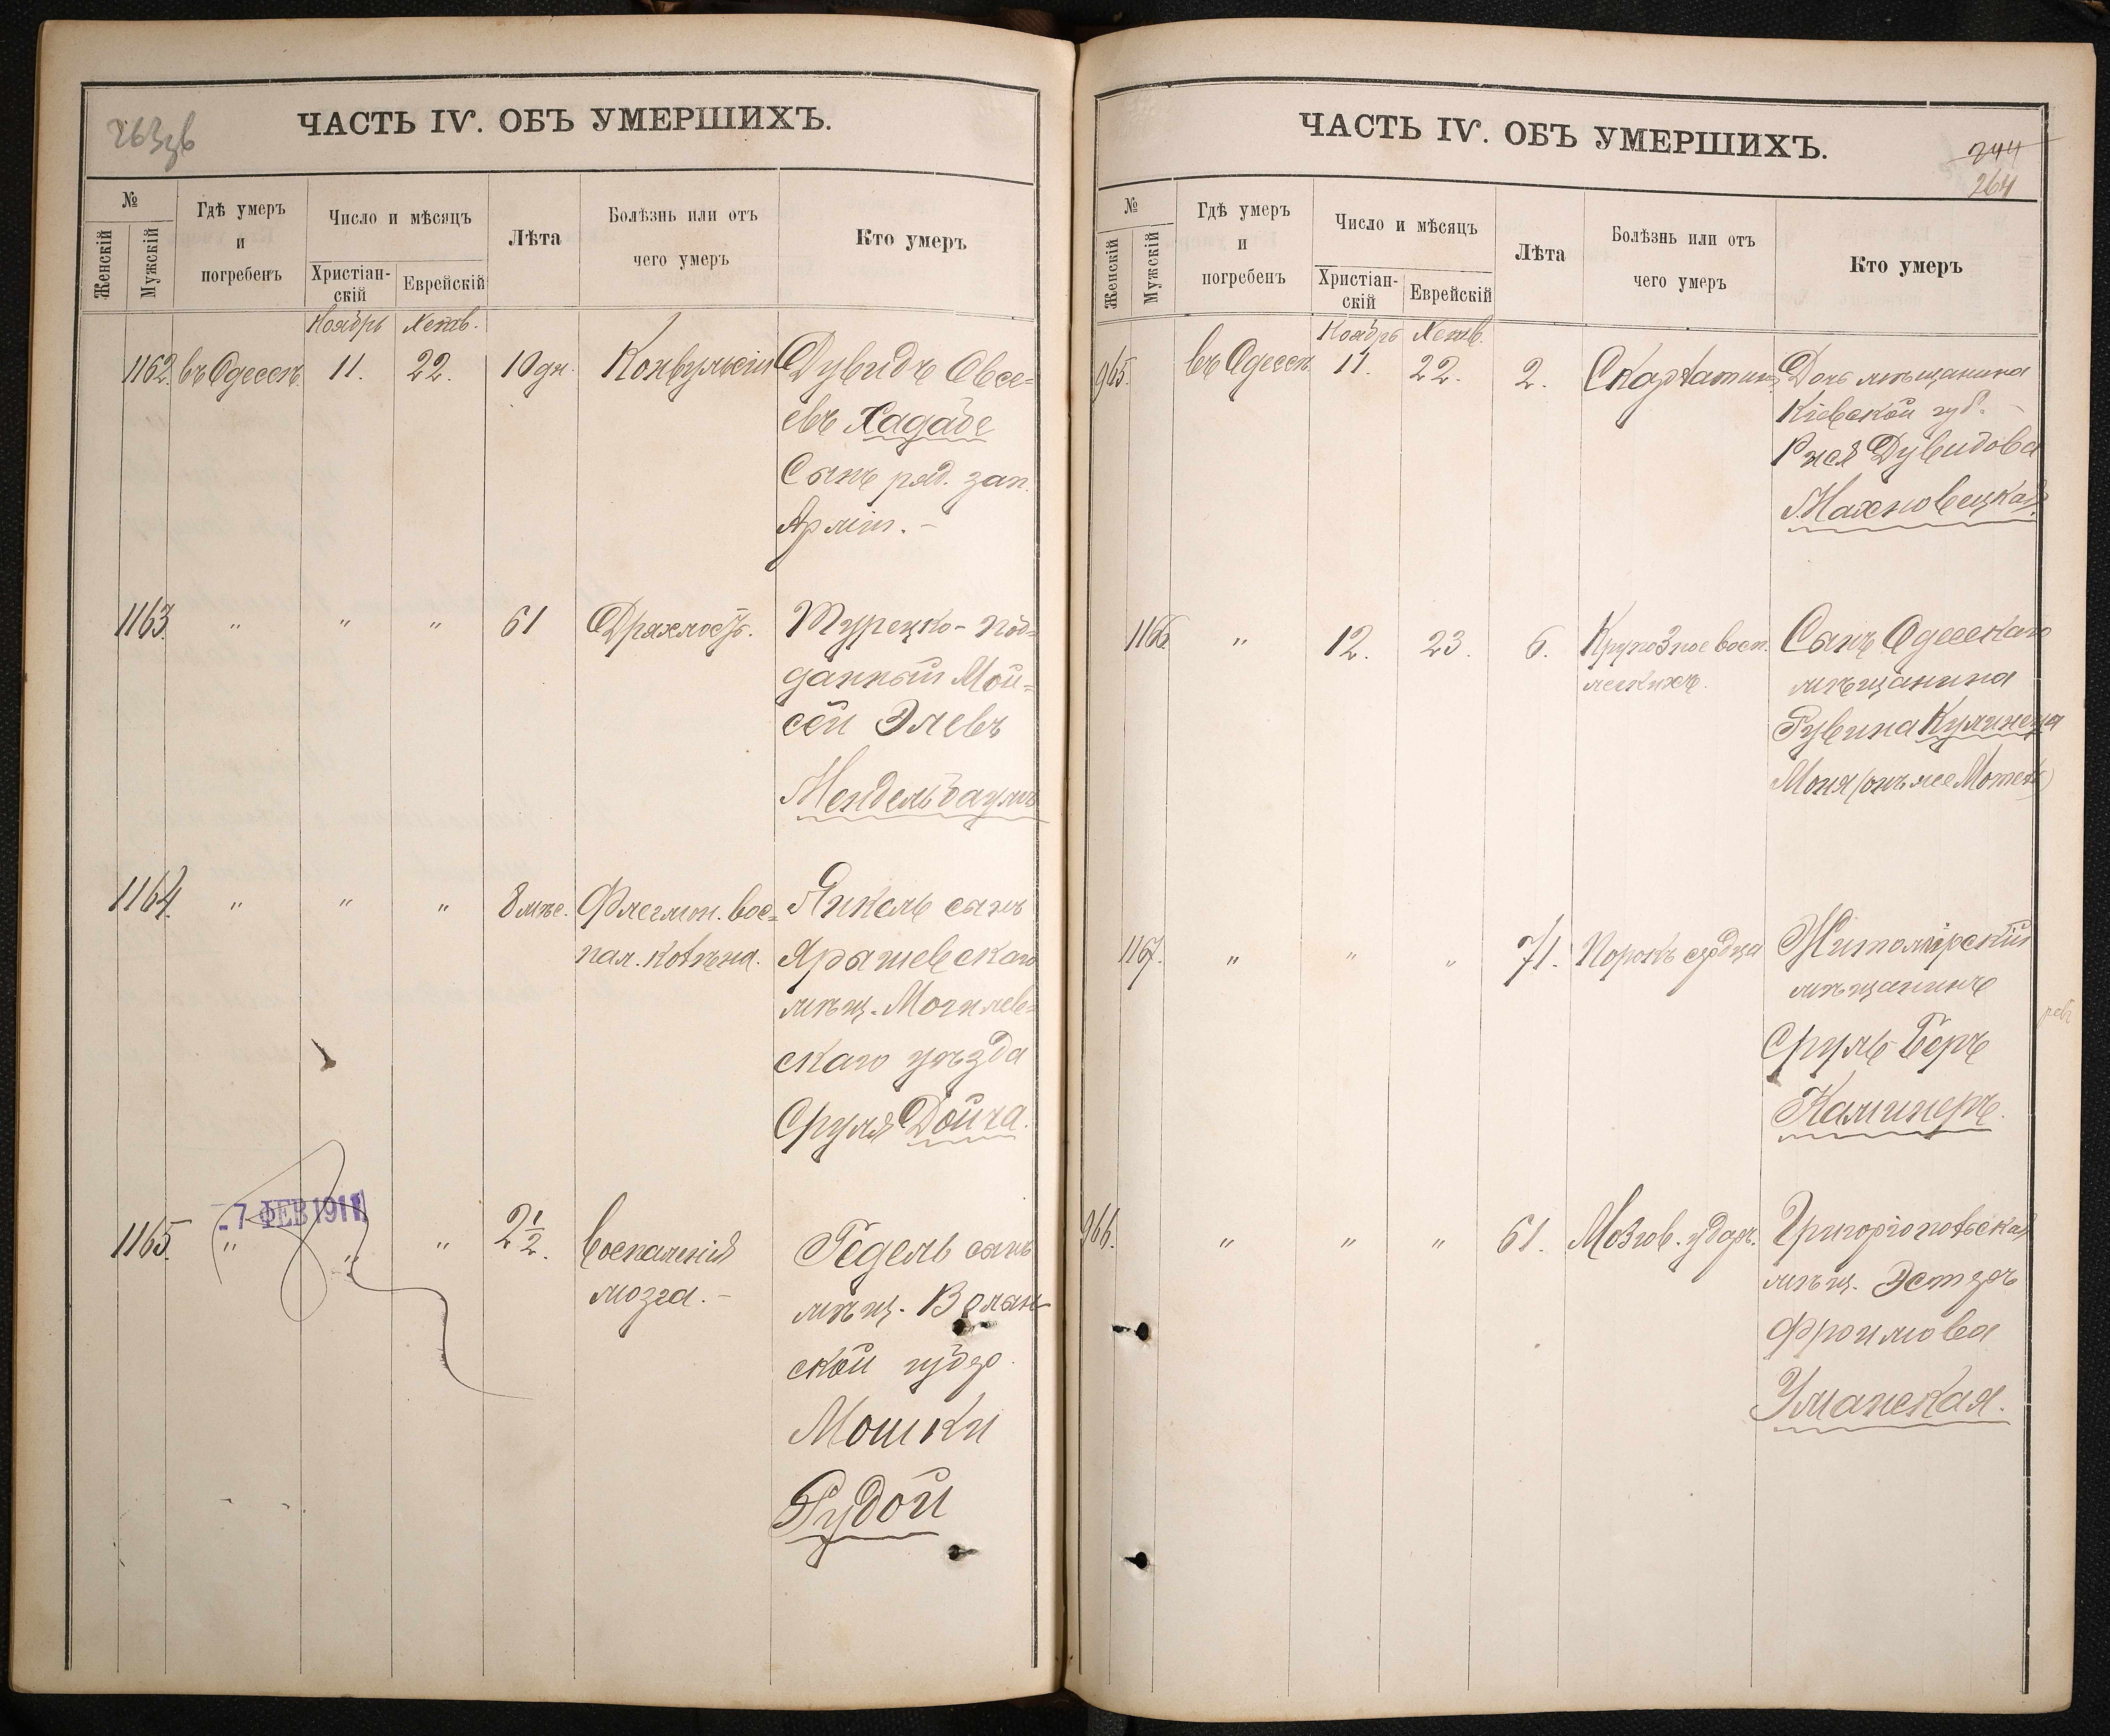 263об
ЧАСТЬ IV. ОБЪ УМЕРШИХЪ.
№
Женскій
Мужскій
Гдѣ умеръ
и
погребенъ
Число и мѣсяцъ
Христіан-
скій
Еврейскій
Лѣта
Болѣзнь или отъ
чего умеръ
Кто умеръ
Ноябрь Хешв.
1162. въ Одессѣ 11. 22. 10 дн. Конвульсіи Дувидъ Овсе=
евъ Хадабе
Сынъ ряд. зап.
Арміи. –
1163 " " " 61 Дряхлость. Турецко-под=
данный Мои=
сей Элевъ
Мендельбаумъ
1164. " " " 8 мѣс. Флегмон. вос= Янкель сынъ
пал. колѣна. Ярышевскаго
мѣщ. Могилев=
скаго уѣзда
Сруля Дойча.
- 7 ФЕВ 1911
1165. " " " 2 1/2. воспаленія Гедель сынъ
мозга. – мѣщ. Волын-
ской губер.
Мошки
Рудой
ЧАСТЬ IV. ОБЪ УМЕРШИХЪ.
244
264
№
Женскій
Мужскій
Гдѣ умеръ
и
погребенъ
Число и мѣсяцъ
Христіан-
скій
Еврейскій
Лѣта
Болѣзнь или отъ
чего умеръ
Кто умеръ
Ноябрь Хешв.
965. въ Одессѣ 11. 22. 2. Скарлатина Дочь мѣщанина
Кіевской губ. –
Рися Дувидова
Махновецкая.
1166. " 12. 23. 6. Крупозное восп. Сынъ Одесскаго
легкихъ. мѣщанина
Рувина Кулинеца
Моня (онъ же Мотель)
1167. " " " 71. Порокъ сердца Житомірскій
мѣщанинъ
Сруль Беръ
Калинеръ.
966. " " " 61. Мозгов. ударъ. Григоріопольская
мѣщ. Эстеръ
Фроимова
Уманская.